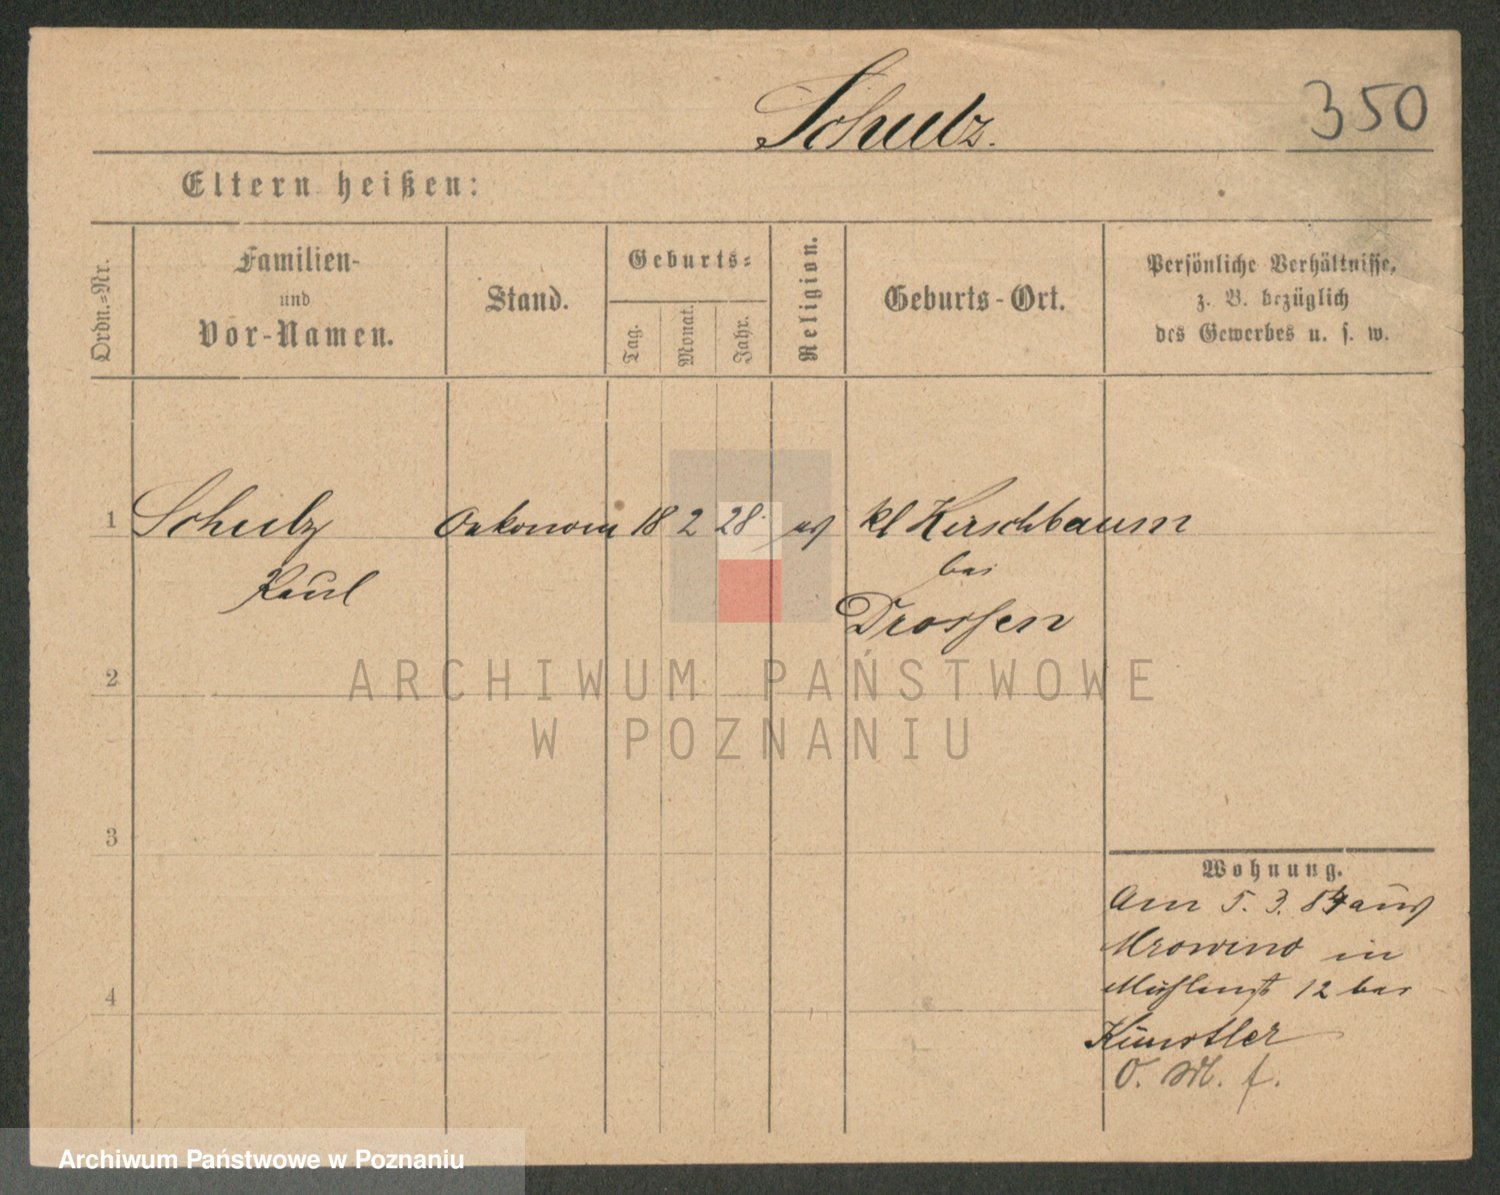 Schulz.
350
Eltern heißen:
Ordn.-Nr.
Familien-
und
Vor-Namen.
Stand.
Geburts-
Tag.
Monat.
Jahr.
Religion.
Geburts-Ort.
Persönliche Verhältnisse,
z. B. bezüglich
des Gewerbes u. s. w.
1 Schulz Oekonom 18 2 28 kl Kirschbaum
Paul bei
Drossen
2
3
4
Wohnung.
Am 5. 3. 84 aus
Mrowino in
Mühlenst 12 bei
Künstler
O. M. f.
ARCHIWUM PAŃSTWOWE
W POZNANIU
Archiwum Państwowe w Poznaniu